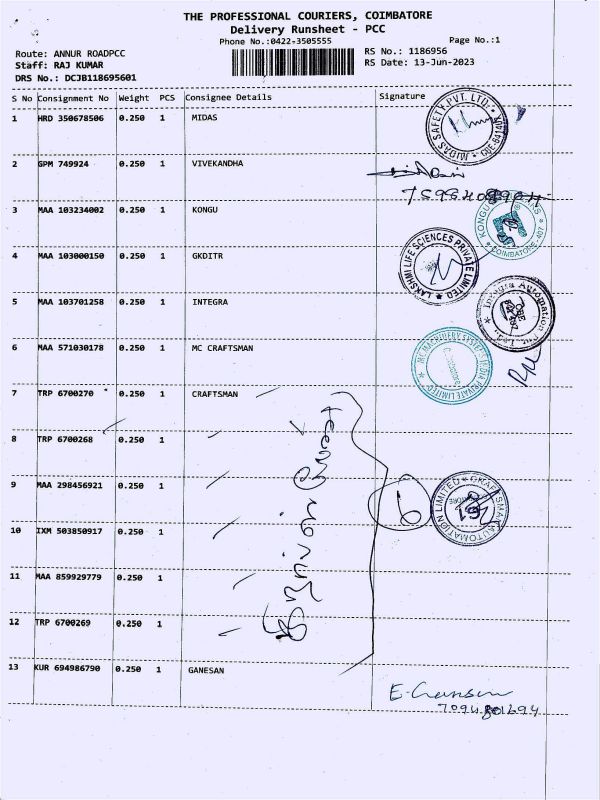 THE PROFESSIONAL COURIERS, COIMBATORE
Delivery Runsheet - PCC
Phone No.:0422-3505555
Page No.:1
Route: ANNUR ROADPCC
Staff: RAJ KUMAR
DRS No.: DCJB118695601
RS No.: 1186956
RS Date: 13-Jun-2023
S No Consignment No Weight PCS Consignee Details Signature
1 HRD 350678506 0.250 1 MIDAS
MIDAS SAFETY PVT. LTD.
2 GPM 749924 0.250 1 VIVEKANDHA
3 MAA 103234002 0.250 1 KONGU
COIMBATORE - 407
4 MAA 103000150 0.250 1 GKDITR
LAKSHMI LIFE SCIENCES PRIVATE LIMITED
5 MAA 103701258 0.250 1 INTEGRA
Integra Automation Pvt. Ltd.,
6 MAA 571030178 0.250 1 MC CRAFTSMAN
MC MACHINERY SYSTEMS INDIA PRIVATE LIMITED
7 TRP 6700270 0.250 1 CRAFTSMAN
8 TRP 6700268 0.250 1
9 MAA 298456921 0.250 1
CRAFTSMAN AUTOMATION LIMITED
10 IXM 503850917 0.250 1
11 MAA 859929779 0.250 1
12 TRP 6700269 0.250 1
13 KUR 694986790 0.250 1 GANESAN